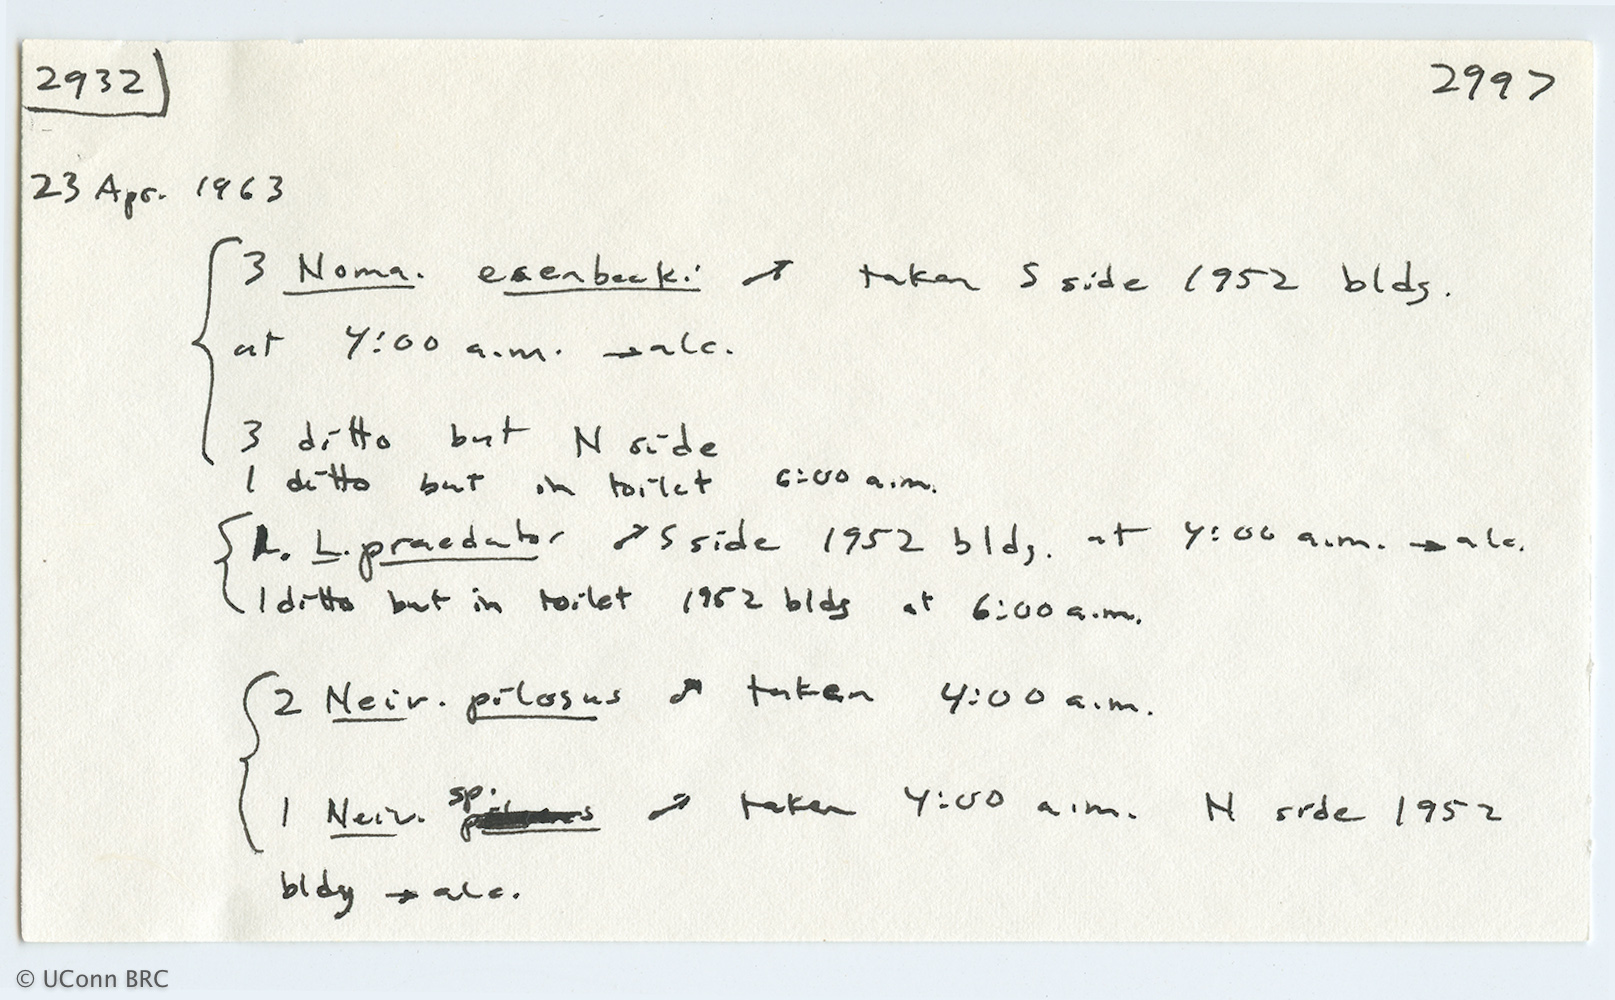 2932
2997
23 Apr. 1963
3 Noma. esenbecki ♂ taken S side 1952 bldg.
at 4:00 a.m. → alc.
3 ditto but N side
1 ditto but in toilet 6:00 a.m.
L. praedator ♂ S side 1952 bldg. at 4:00 a.m. → alc.
1 ditto but in toilet 1952 bldg at 6:00 a.m.
2 Neiv. pilosus ♂ taken 4:00 a.m.
1 Neiv. sp. ♂ taken 4:00 a.m. N side 1952
bldg → alc.
© UConn BRC